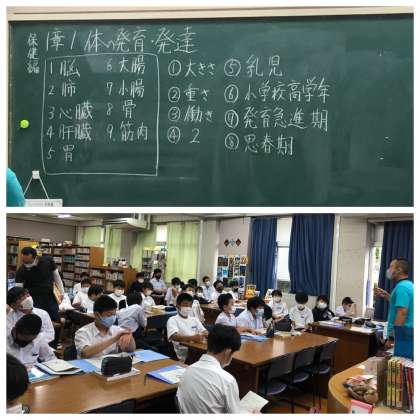 保健編
1章1 体の発育・発達
1 脳 6 大腸
2 肺 7 小腸
3 心臓 8 骨
4 肝臓 9. 筋肉
5 胃
① 大きさ ⑤ 乳児
② 重さ ⑥ 小学校高学年
③ 働き ⑦ 発育急進期
④ 2 ⑧ 思春期